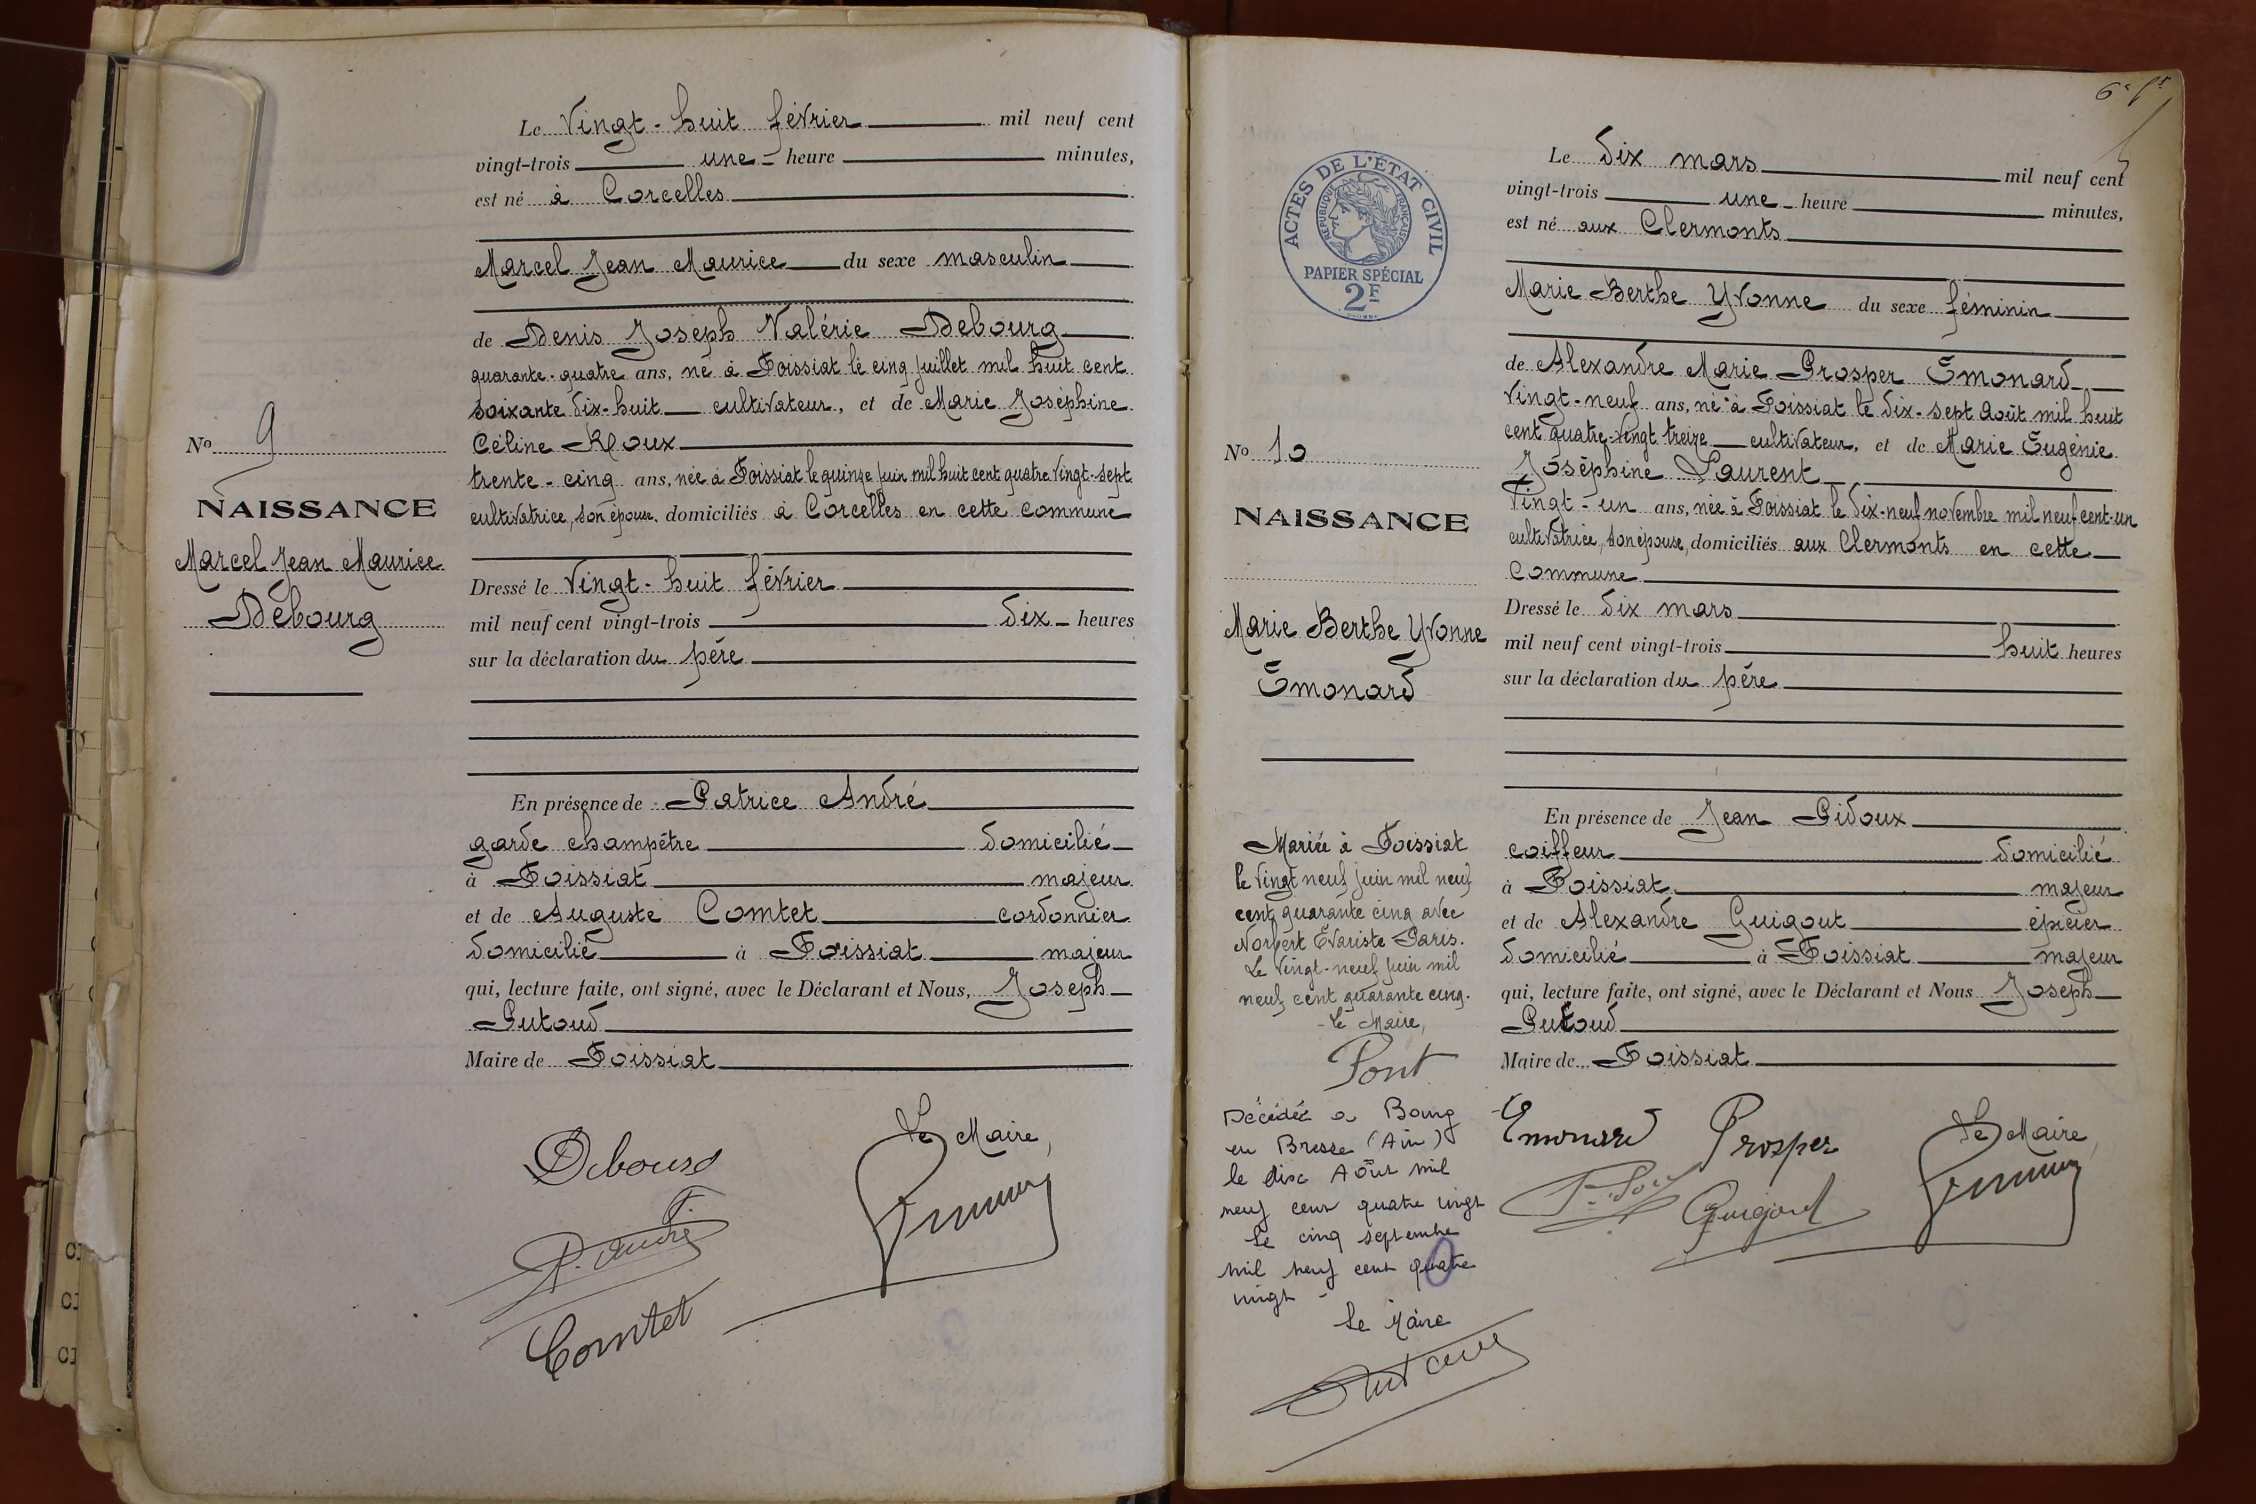 Le Vingt-huit février mil neuf cent
vingt-trois une heure minutes,
est né à Corcelles
Marcel Jean Maurice du sexe masculin
de Denis Joseph Valérie Debourg
quarante-quatre ans, né à Foissiat le cinq juillet mil huit cent
soixante dix-huit cultivateur, et de Marie Joséphine
Céline Roux
trente-cinq ans, née à Foissiat le quinze juin mil huit cent quatre vingt-sept
cultivatrice, son épouse, domiciliés à Corcelles en cette commune
Dressé le Vingt-huit février
mil neuf cent vingt-trois dix heures
sur la déclaration du père
En présence de Patrice André
garde champêtre domicilié
à Foissiat majeur
et de Auguste Comtet cordonnier
domicilié à Foissiat majeur
qui, lecture faite, ont signé, avec le Déclarant et Nous, Joseph
Putoud
Maire de Foissiat
Le Maire,
Debourg
P. André
Comtet
No 9
NAISSANCE
Marcel Jean Maurice
Debourg
6e ft
ACTES DE L'ÉTAT CIVIL
RÉPUBLIQUE FRANÇAISE
PAPIER SPÉCIAL
2F
Le dix mars mil neuf cent
vingt-trois une heure minutes,
est né aux Clermonts
Marie Berthe Yvonne du sexe féminin
de Alexandre Marie Prosper Emonard
Vingt-neuf ans, né à Foissiat le dix-sept Août mil huit
cent quatre-vingt treize cultivateur, et de Marie Eugénie
Joséphine Laurent
Vingt-un ans, née à Foissiat le dix-neuf novembre mil neuf-cent-un
cultivatrice, son épouse, domiciliés aux Clermonts en cette
commune
Dressé le dix mars
mil neuf cent vingt-trois huit heures
sur la déclaration du père
En présence de Jean Pidoux
coiffeur domicilié
à Foissiat majeur
et de Alexandre Guigout épicier
domicilié à Foissiat majeur
qui, lecture faite, ont signé, avec le Déclarant et Nous Joseph
Putoud
Maire de Foissiat
Le Maire,
Emonard Prosper
Guigout
No 10
NAISSANCE
Marie Berthe Yvonne
Emonard
Mariée à Foissiat
le vingt neuf juin mil neuf
cent quarante cinq avec
Norbert Évariste Paris.
Le Vingt-neuf juin mil
neuf cent quarante cinq.
Le Maire,
Pont
Décédée à Bourg
en Bresse (Ain)
le dix Août mil
neuf cent quatre vingt
Le cinq septembre
mil neuf cent quatre
vingt -
Le Maire